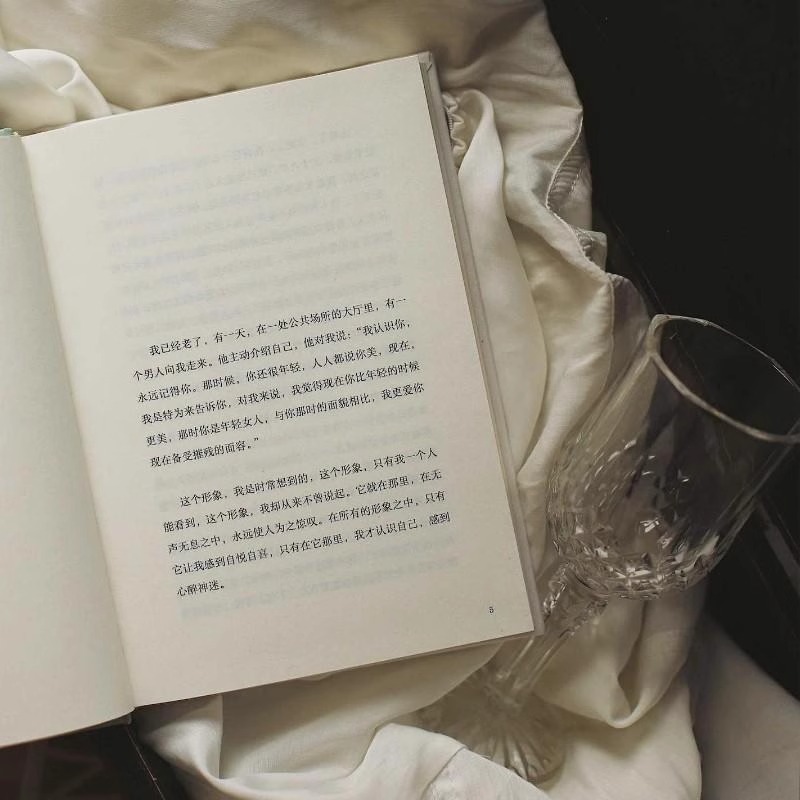 我已经老了，有一天，在一处公共场所的大厅里，有一
个男人向我走来。他主动介绍自己，他对我说：“我认识你，
永远记得你。那时候，你还很年轻，人人都说你美，现在，
我是特为来告诉你，对我来说，我觉得现在你比年轻的时候
更美，那时你是年轻女人，与你那时的面貌相比，我更爱你
现在备受摧残的面容。”
这个形象，我是时常想到的，这个形象，只有我一个人
能看到，这个形象，我却从来不曾说起。它就在那里，在无
声无息之中，永远使人为之惊叹。在所有的形象之中，只有
它让我感到自悦自喜，只有在它那里，我才认识自己，感到
心醉神迷。
5